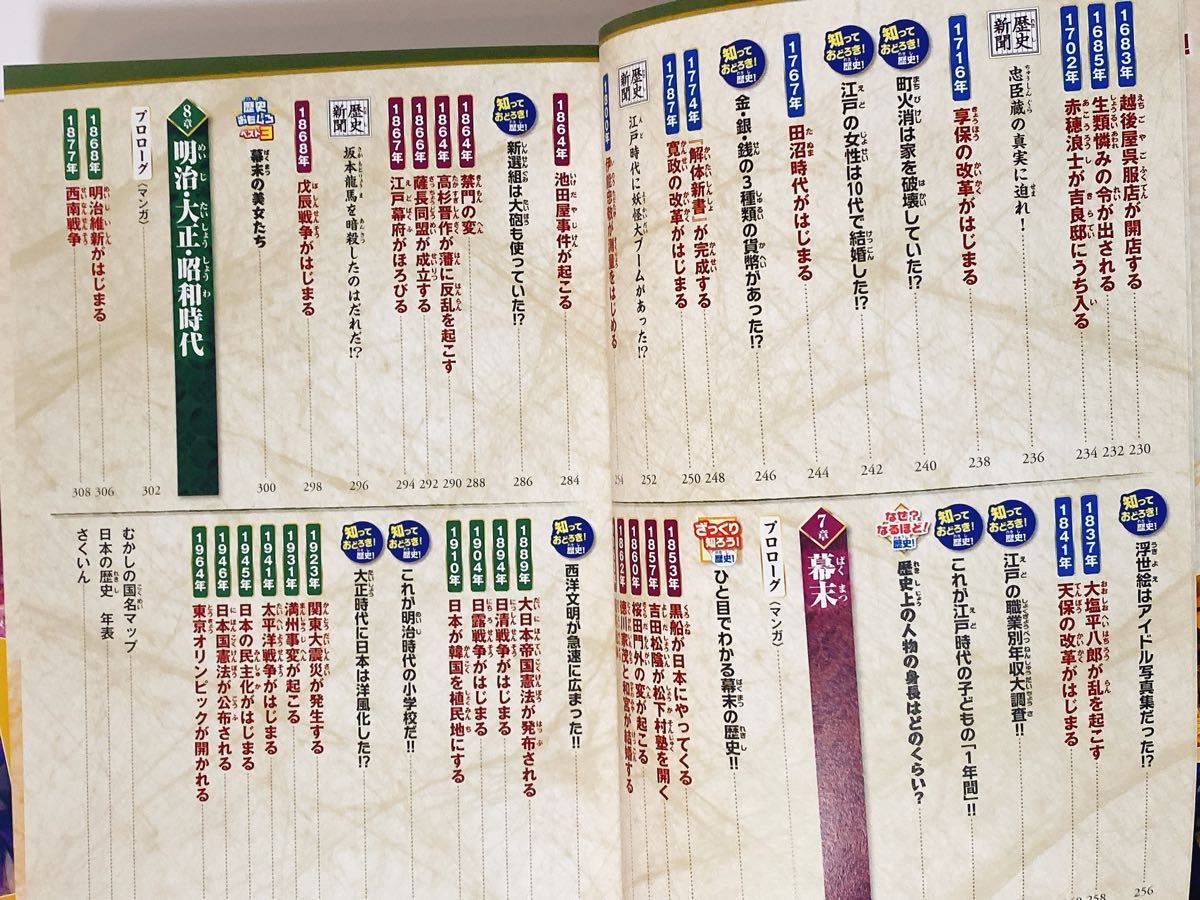 1683年 越後屋呉服店が開店する 230
1685年 生類憐みの令が出される 232
1702年 赤穂浪士が吉良邸にうち入る 234
歴史新聞 忠臣蔵の真実に迫れ! 236
1716年 享保の改革がはじまる 238
知っておどろき!歴史! 町火消は家を破壊していた!? 240
知っておどろき!歴史! 江戸の女性は10代で結婚した!? 242
1767年 田沼時代がはじまる 244
知っておどろき!歴史! 金・銀・銭の3種類の貨幣があった!? 246
1774年 『解体新書』が完成する 248
1787年 寛政の改革がはじまる 250
歴史新聞 江戸時代に妖怪大ブームがあった!? 252
知っておどろき!歴史! 浮世絵はアイドル写真集だった!? 256
1837年 大塩平八郎が乱を起こす 258
1841年 天保の改革がはじまる
知っておどろき!歴史! 江戸の職業別年収大調査!!
知っておどろき!歴史! これが江戸時代の子どもの「1年間」!!
なぜ?なるほど!歴史! 歴史上の人物の身長はどのくらい?
7章 幕末
プロローグ〈マンガ〉
ざっくり知ろう!歴史! ひと目でわかる幕末の歴史!!
1853年 黒船が日本にやってくる
1857年 吉田松陰が松下村塾を開く
1860年 桜田門外の変が起こる
1862年 徳川家茂と和宮が結婚する
1864年 池田屋事件が起こる 284
知っておどろき!歴史! 新選組は大砲も使っていた!? 286
1864年 禁門の変 288
1864年 高杉晋作が藩に反乱を起こす 290
1866年 薩長同盟が成立する 292
1867年 江戸幕府がほろびる 294
歴史新聞 坂本龍馬を暗殺したのはだれだ!? 296
1868年 戊辰戦争がはじまる 298
歴史おもしろベスト3 幕末の美女たち 300
8章 明治・大正・昭和時代
プロローグ〈マンガ〉 302
1868年 明治維新がはじまる 306
1877年 西南戦争 308
知っておどろき!歴史! 西洋文明が急速に広まった!!
1889年 大日本帝国憲法が発布される
1894年 日清戦争がはじまる
1904年 日露戦争がはじまる
1910年 日本が韓国を植民地にする
知っておどろき!歴史! これが明治時代の小学校だ!!
知っておどろき!歴史! 大正時代に日本は洋風化した!?
1923年 関東大震災が発生する
1931年 満州事変が起こる
1941年 太平洋戦争がはじまる
1945年 日本の民主化がはじまる
1946年 日本国憲法が公布される
1964年 東京オリンピックが開かれる
むかしの国名マップ
日本の歴史 年表
さくいん